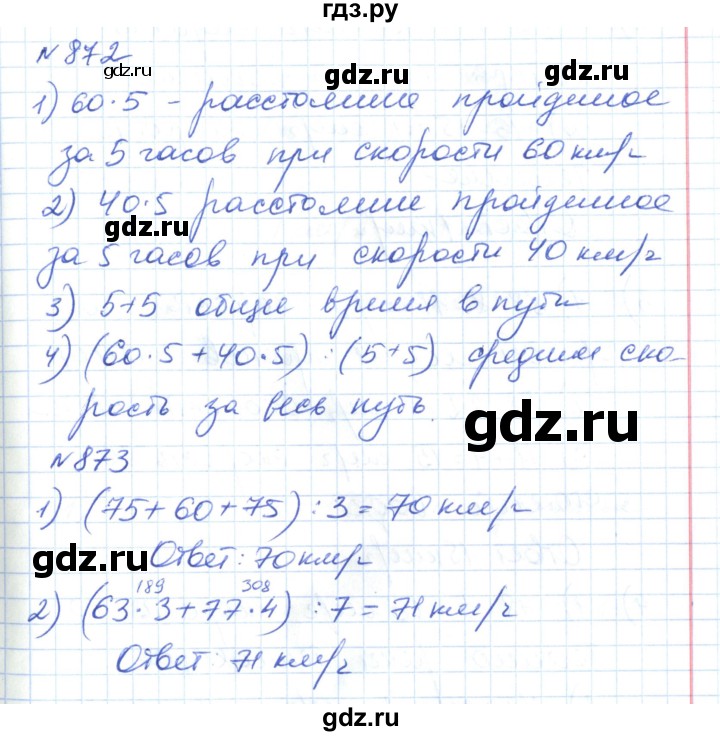 гдз.ру
№872
gdz.ru
gdz.ru
gdz.ru
1) 60·5 - расстояние пройденное
за 5 часов при скорости 60 км/ч
2) 40·5 расстояние пройденное
за 5 часов при скорости 40 км/ч
3) 5+5 общее время в пути
4) (60·5+40·5):(5+5) средняя ско-
рость за весь путь.
gdz.ru
№873
1) (75+60+75):3=70 км/ч
gdz.ru
Ответ: 70 км/ч
189 308
2) (63·3+77·4):7=71 км/ч
Ответ: 71 км/ч
gdz.ru